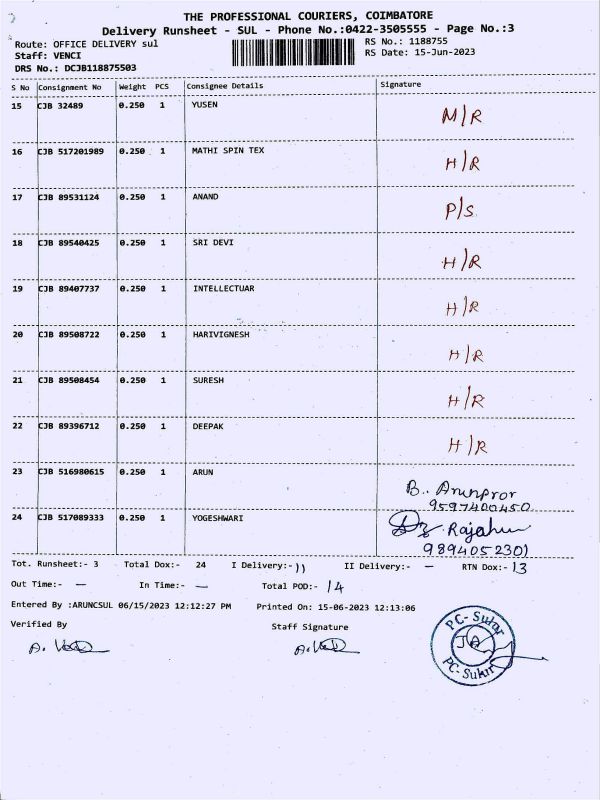 THE PROFESSIONAL COURIERS, COIMBATORE
Delivery Runsheet - SUL - Phone No.:0422-3505555 - Page No.:3
Route: OFFICE DELIVERY sul RS No.: 1188755
Staff: VENCI RS Date: 15-Jun-2023
DRS No.: DCJB118875503
S No Consignment No Weight PCS Consignee Details Signature
15 CJB 32489 0.250 1 YUSEN M/R
16 CJB 517201989 0.250 1 MATHI SPIN TEX H/R
17 CJB 89531124 0.250 1 ANAND P/S
18 CJB 89540425 0.250 1 SRI DEVI H/R
19 CJB 89407737 0.250 1 INTELLECTUAR H/R
20 CJB 89508722 0.250 1 HARIVIGNESH H/R
21 CJB 89508454 0.250 1 SURESH H/R
22 CJB 89396712 0.250 1 DEEPAK H/R
23 CJB 516980615 0.250 1 ARUN B.
9597400450
24 CJB 517089333 0.250 1 YOGESHWARI
9894052301
Tot. Runsheet:- 3 Total Dox:- 24 I Delivery:- 11 II Delivery:- - RTN Dox:- 13
Out Time:- - In Time:- - Total POD:- 14
Entered By :ARUNCSUL 06/15/2023 12:12:27 PM Printed On: 15-06-2023 12:13:06
Verified By Staff Signature
PC-Sulur
PC-Sulur